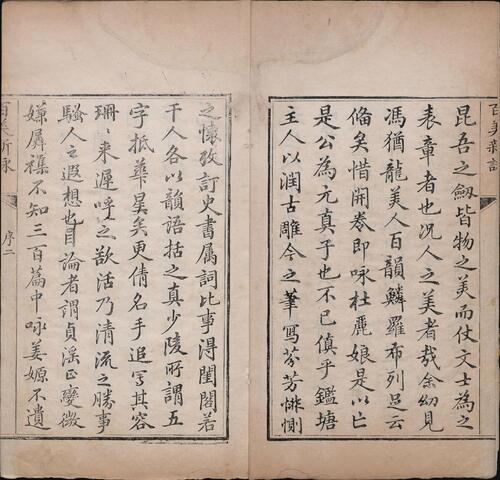 百美新詠
昆吾之劒皆物之美而仗文士為之
表章者也况人之美者哉余幼見
馮猶龍美人百韻鱗羅布列足云
備矣惜開卷即咏杜麗娘是以亡
是公為元真子也不已傎乎鑑塘
主人以潤古雕今之筆寫芬芳悱惻
之懷攷訂史書屬詞比事得閨閣若
干人各以韻語括之真少陵所謂五
字抵華星矣更倩名手追寫其容
珊〻來遲呼之欲活乃清流之勝事
騷人之遐想也目論者謂貞淫正變微
嫌羼襍不知三百篇中咏姜嫄不遺
百美新詠
序二